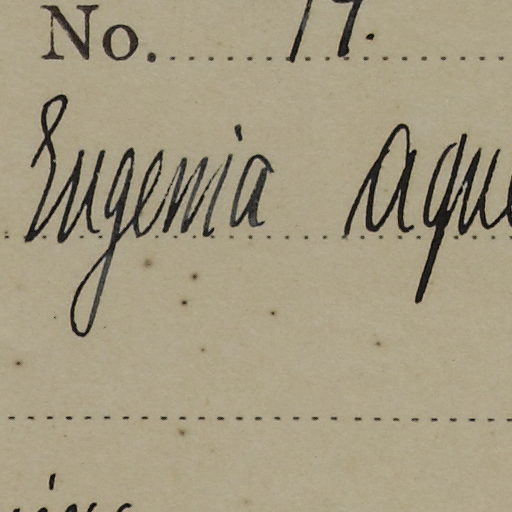 No. 19.
Eugenia aque